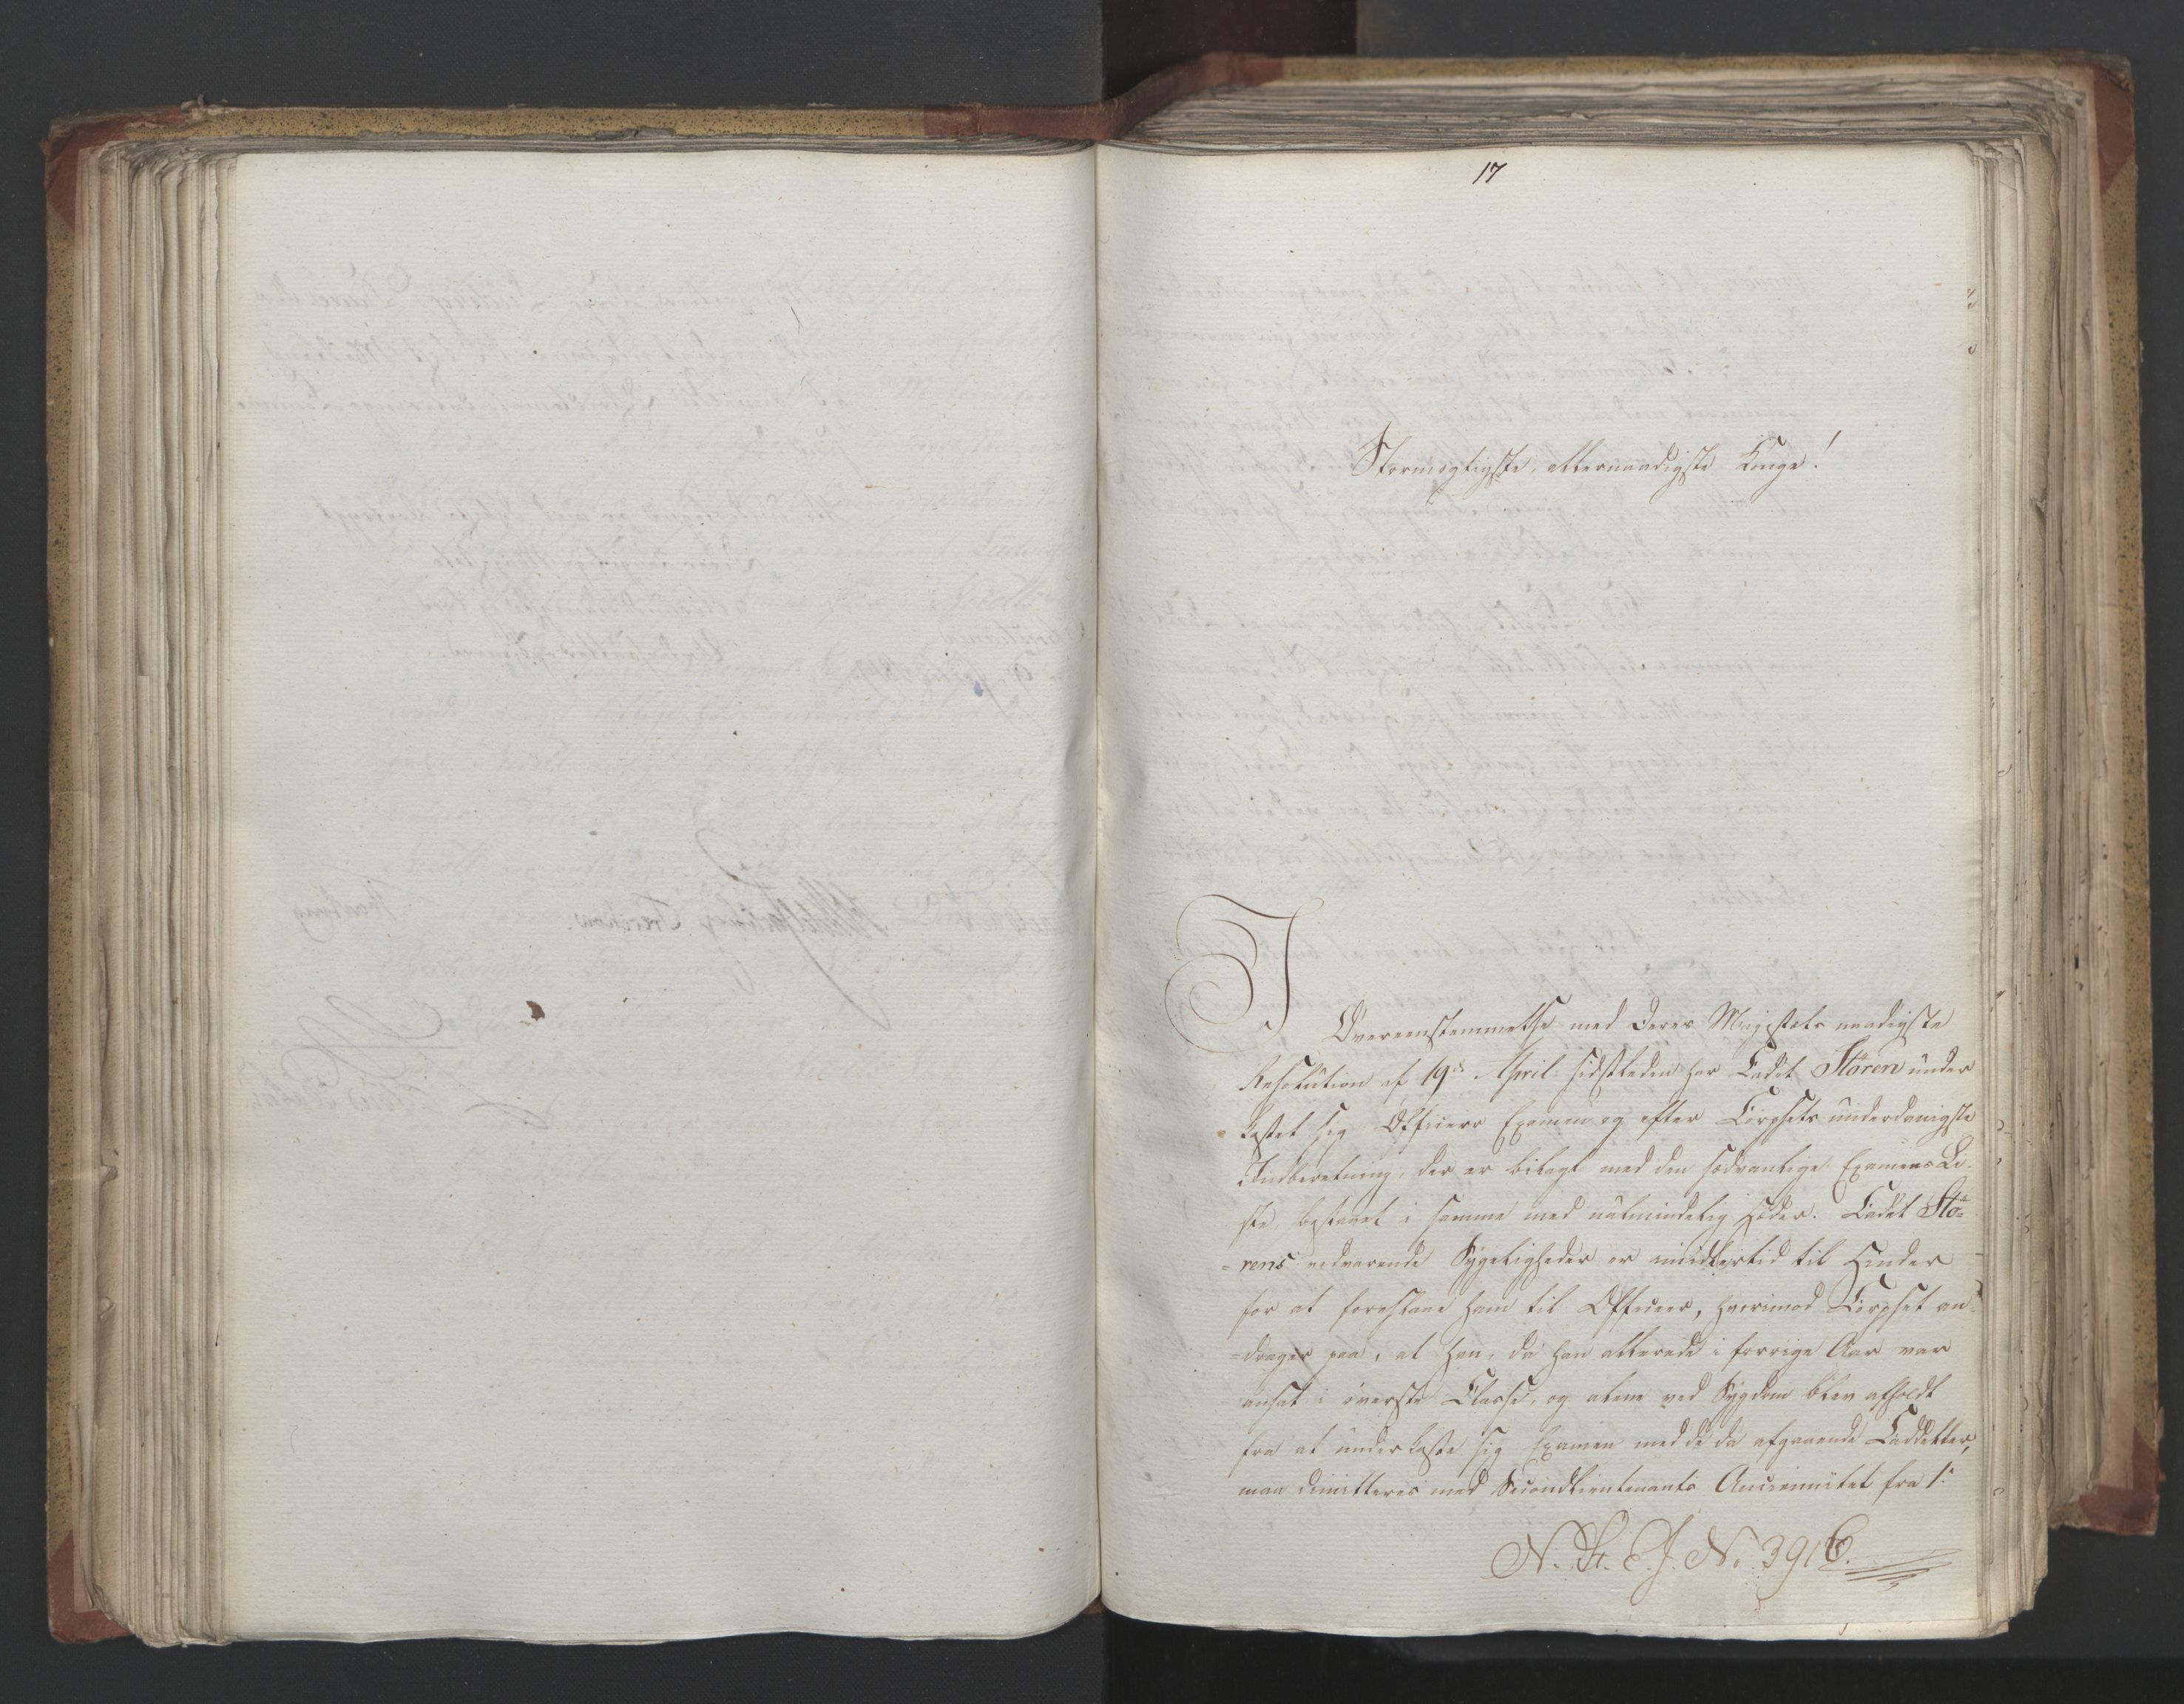 17
Stormægtigste, allernaadigste Konge!
I
Overeensstemmelse med Deres Majestæts naadigste
Resolution af 19de April sidstleden har Cadet Stören under
kastet sig Officeers Examen og efter Corpsets underdanigste
Indberetning, der er bilagt med den sædvanlige Examens Li-
ste, bestaaet i samme med ualmindelig Hæder. Cadet Stö-
-rens vedvarende Sygeligheder er imidlertid til Hinder
for at foreslaae ham til Officeer, hvorimod Corpset an-
-drager paa, at han, da han allerede i forrige Aar var
ansat i överste Classe, og alene ved Sygdom blev afholdt
fra at underkaste sig Examen med de da afgaaende Cadetter,
maa dimitteres med Secondlieutenants Anciennitet fra 1ste
N. St. E. J. No. 3916.